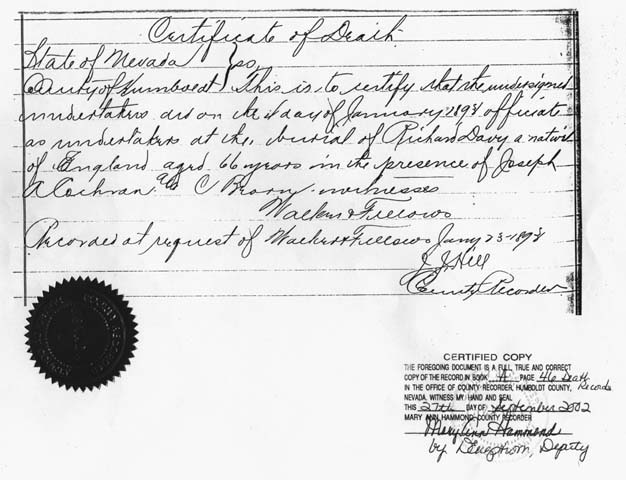 Certificate of Death
State of Nevada } ss.
County of Humboldt } This is to certify that the undersigned
undertakers did on the day of January 1898 officiate
as undertakers at the burial of Richard Davy a native
of England aged 66 years in the presence of Joseph
A Cochran and C witnesses
Walker & Fellows
Recorded at request of Walker & Fellows Jany 23-1898
J. J. Hill
County Recorder
CERTIFIED COPY
THE FOREGOING DOCUMENT IS A FULL, TRUE AND CORRECT
COPY OF THE RECORD IN BOOK A PAGE 46 Death Records
IN THE OFFICE OF COUNTY RECORDER, HUMBOLDT COUNTY,
NEVADA. WITNESS MY HAND AND SEAL
THIS 27th DAY OF September 2002
MARY ANN HAMMOND, COUNTY RECORDER
Mary Ann Hammond
by Deputy